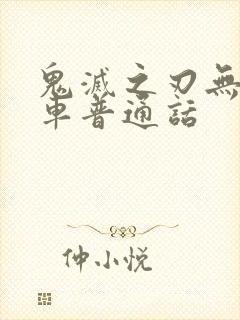 鬼滅之刃無
車普通話
仲小悦